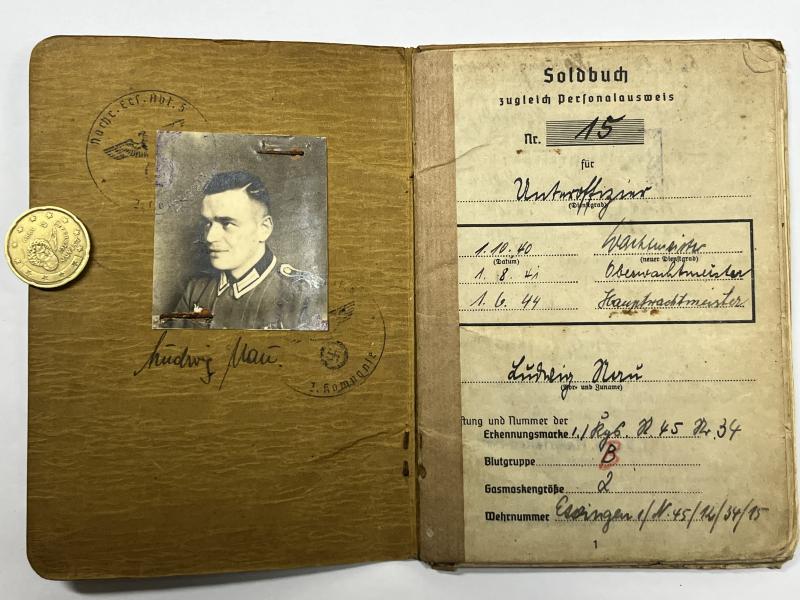 Nachr. Ers. Abt. 5
2. Kompanie
Ludwig Nau.
Soldbuch
zugleich Personalausweis
Nr. 15
für
Unteroffizier
(Dienstgrad)
1.10.40 Wachtmeister
(Datum) (neuer Dienstgrad)
1.8.41 Oberwachtmeister
1.6.44 Hauptwachtmeister
Ludwig Nau
(Vor- und Zuname)
ftung und Nummer der
Erkennungsmarke 1./Kgs. N. 45 Nr. 34
Blutgruppe B
Gasmaskengröße 2
Wehrnummer N. 45/12/34/15
1